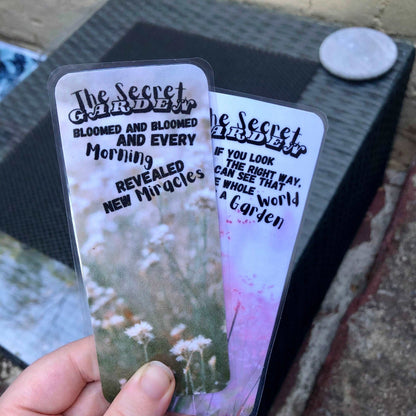 The Secret
GARDEN
BLOOMED AND BLOOMED
AND EVERY
Morning
REVEALED
NEW Miracles
The Secret
GARDEN
IF YOU LOOK
THE RIGHT WAY,
CAN SEE THAT
WHOLE World
A Garden